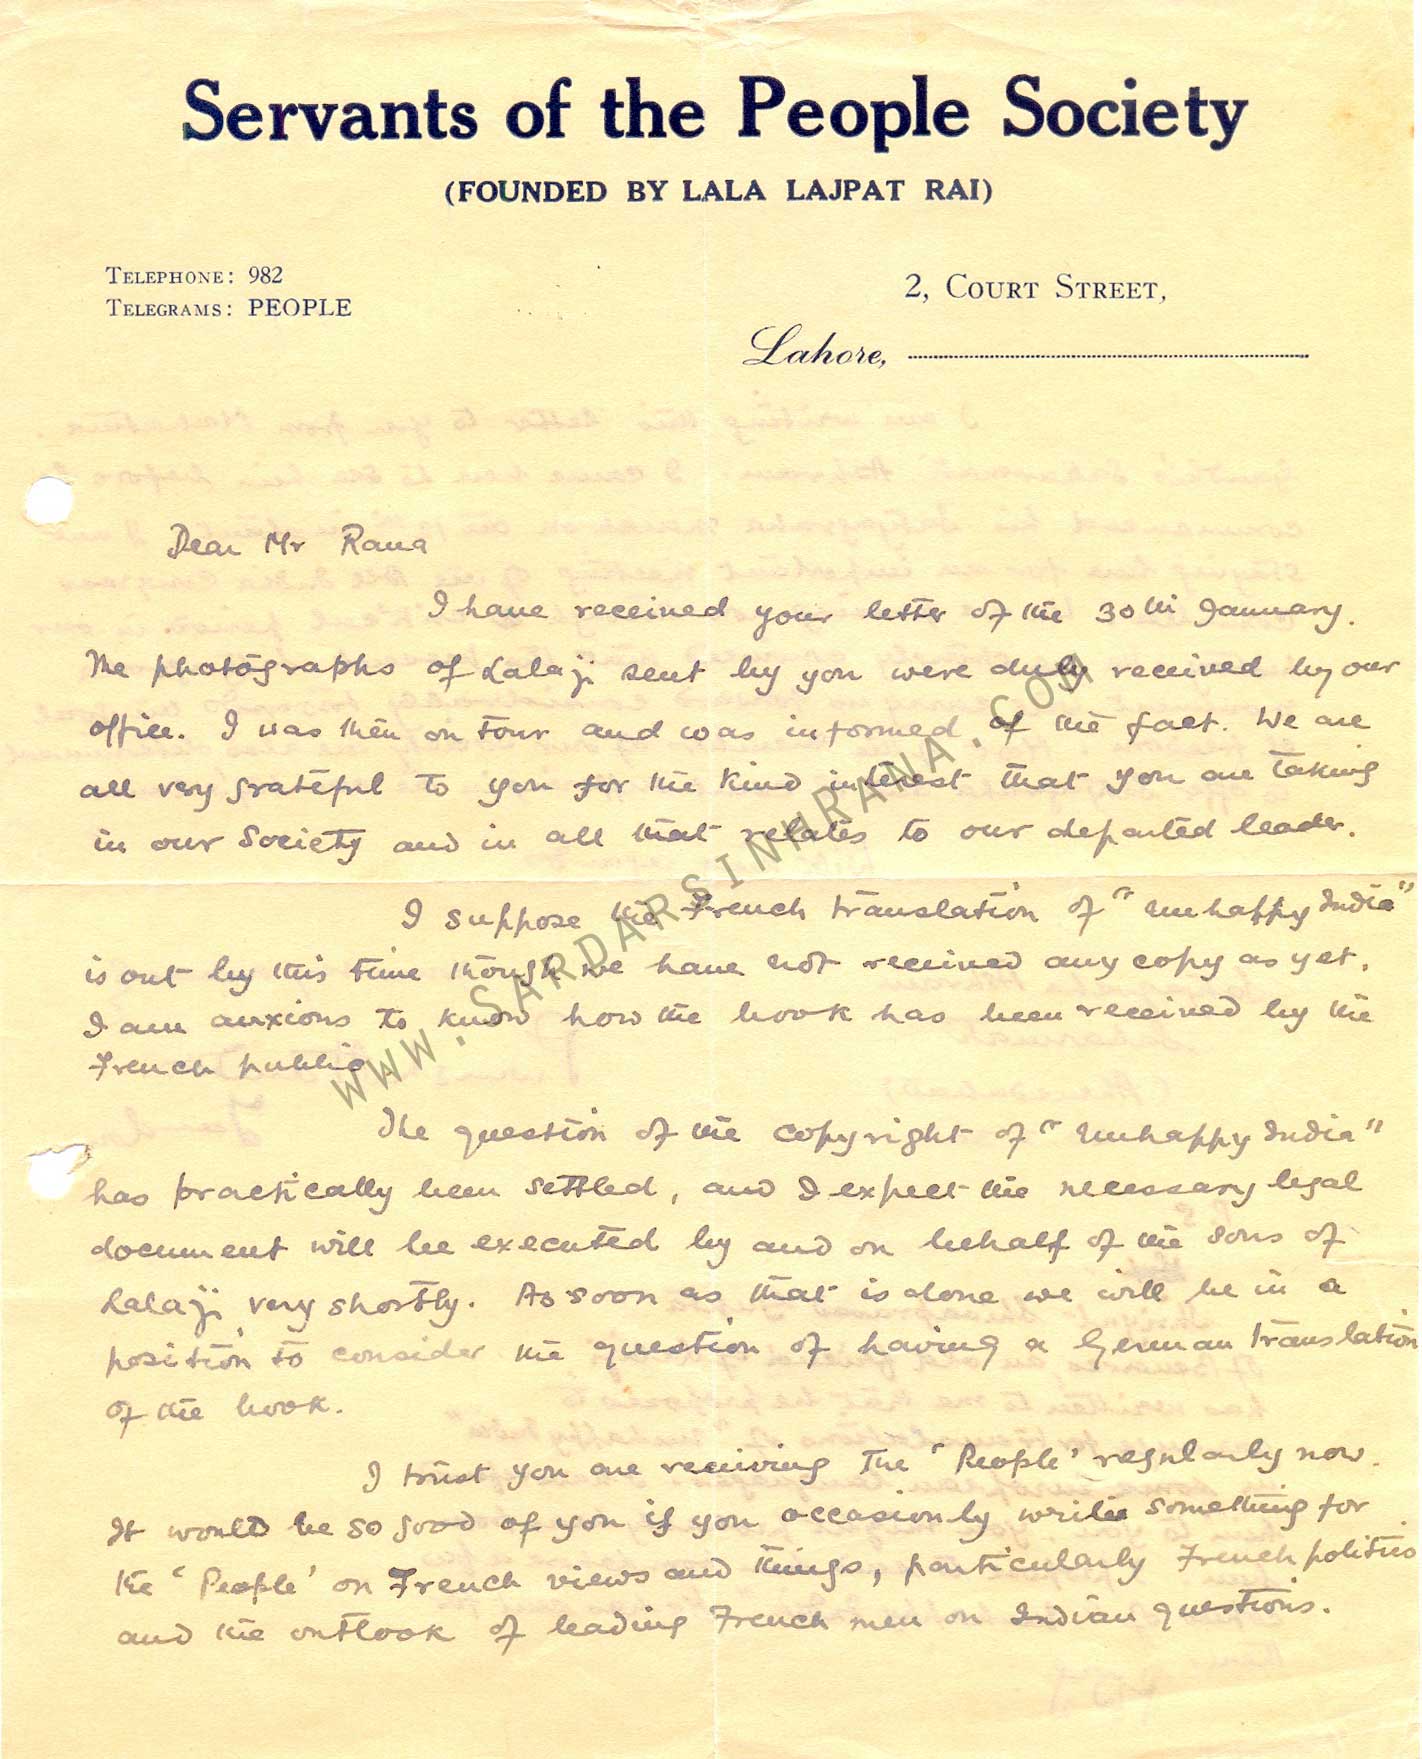 Servants of the People Society
(FOUNDED BY LALA LAJPAT RAI)
TELEPHONE: 982
TELEGRAMS: PEOPLE
2, COURT STREET,
Lahore,
Dear Mr Rana
I have received your letter of the 30th January.
The photographs of Lalaji sent by you were duly received by our
office. I was then on tour and was informed of the fact. We are
all very grateful to you for the kind interest that you are taking
in our Society and in all that relates to our departed leader.
I suppose the French translation of "Unhappy India"
is out by this time though we have not received any copy as yet.
I am anxious to know how the book has been received by the
French public.
The question of the copyright of "Unhappy India"
has practically been settled, and I expect the necessary legal
document will be executed by and on behalf of the sons of
Lalaji very shortly. As soon as that is done we will be in a
position to consider the question of having a German translation
of the book.
I trust you are receiving The 'People' regularly now.
It would be so good of you if you occasionly write something for
the 'People' on French views and things, particularly French politics
and the outlook of leading French men on Indian questions.
WWW.SARDARSINHRANA.COM